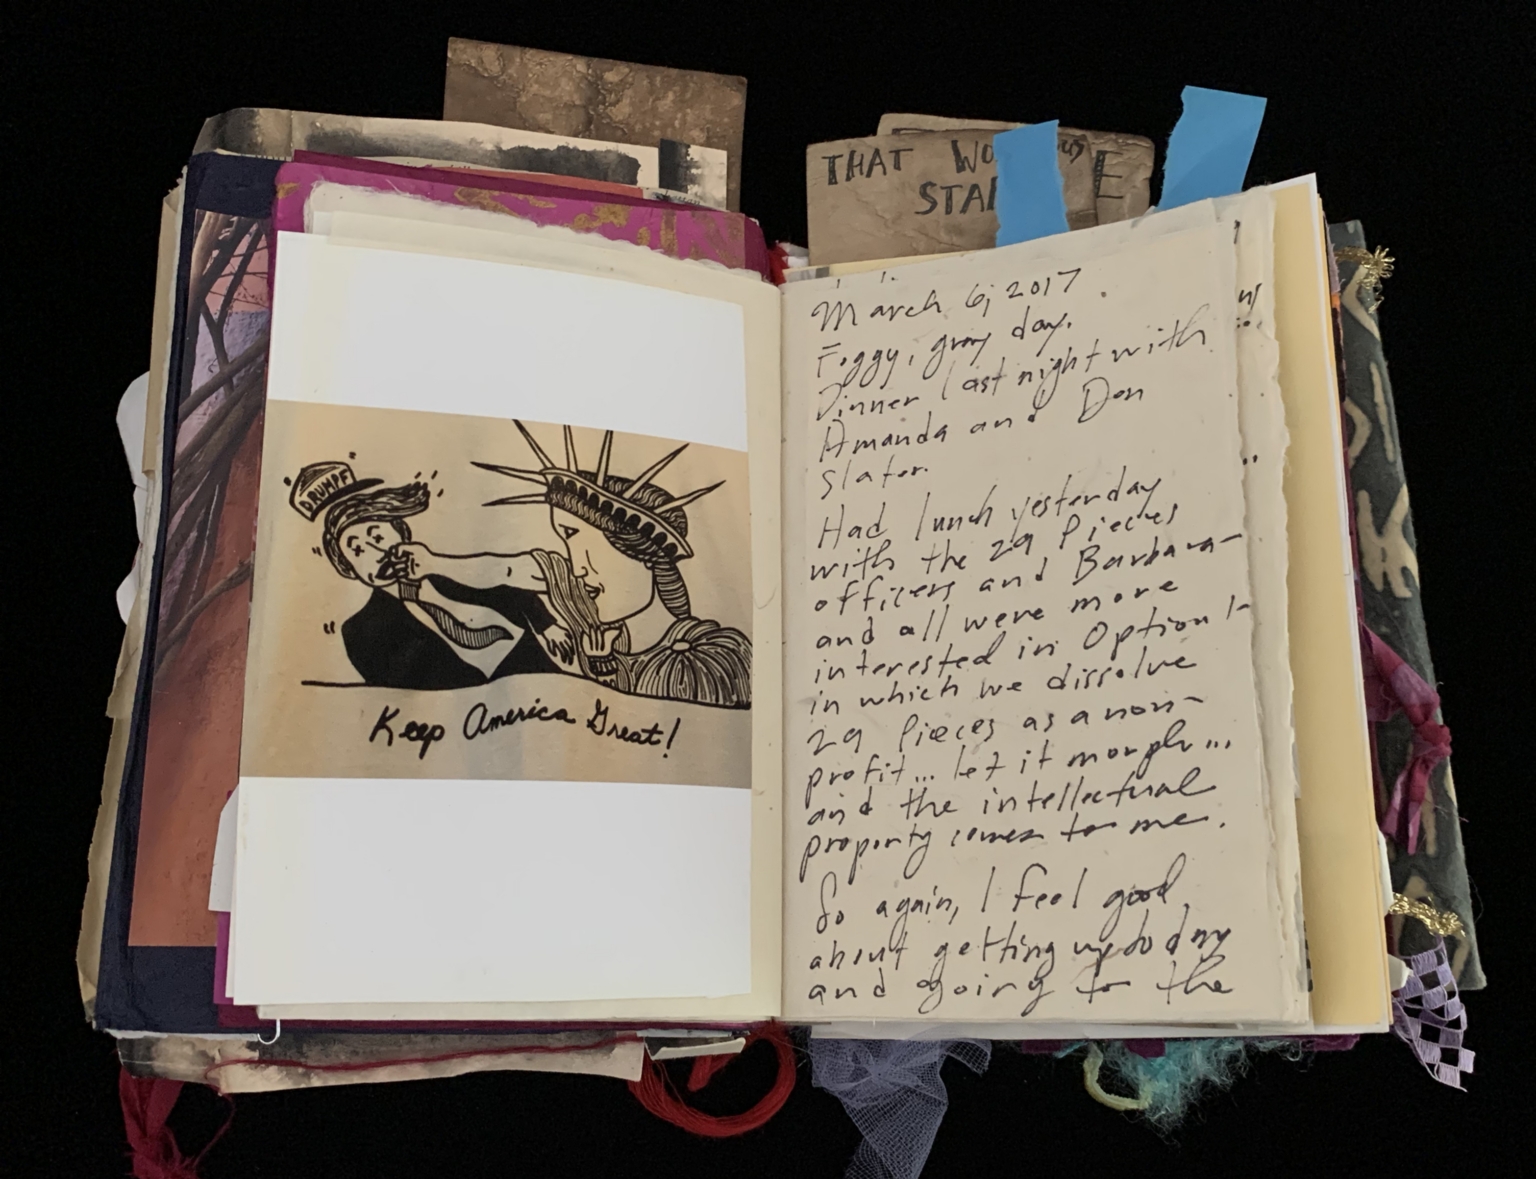 THAT WO US E
STA
DRUMPF
Keep America Great!
March 6, 2017.
Foggy, gray day.
Dinner last night with
Amanda and Don
Slater.
Had lunch yesterday
with the 29 Pieces
officers and Barbara—
and all were more
interested in Option 1—
in which we dissolve
29 Pieces as a non-
profit... let it morph...
and the intellectual
property comes to me.
So again, I feel good
about getting up today
and going to the